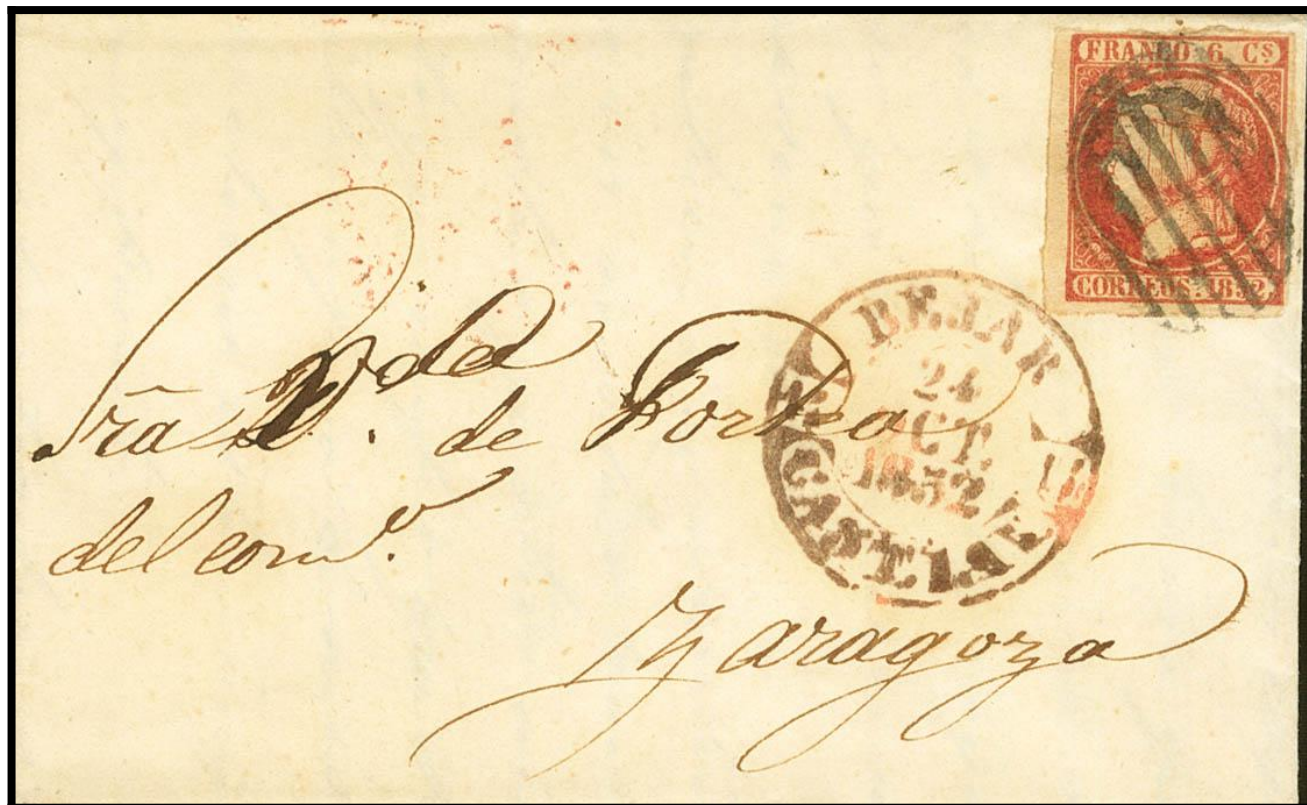 FRANCO 6. Cs
CORREOS. 1852
BEJAR
24
OCT.
1852
CAST. LA V.
Sra V.da de
del com.o
Zaragoza